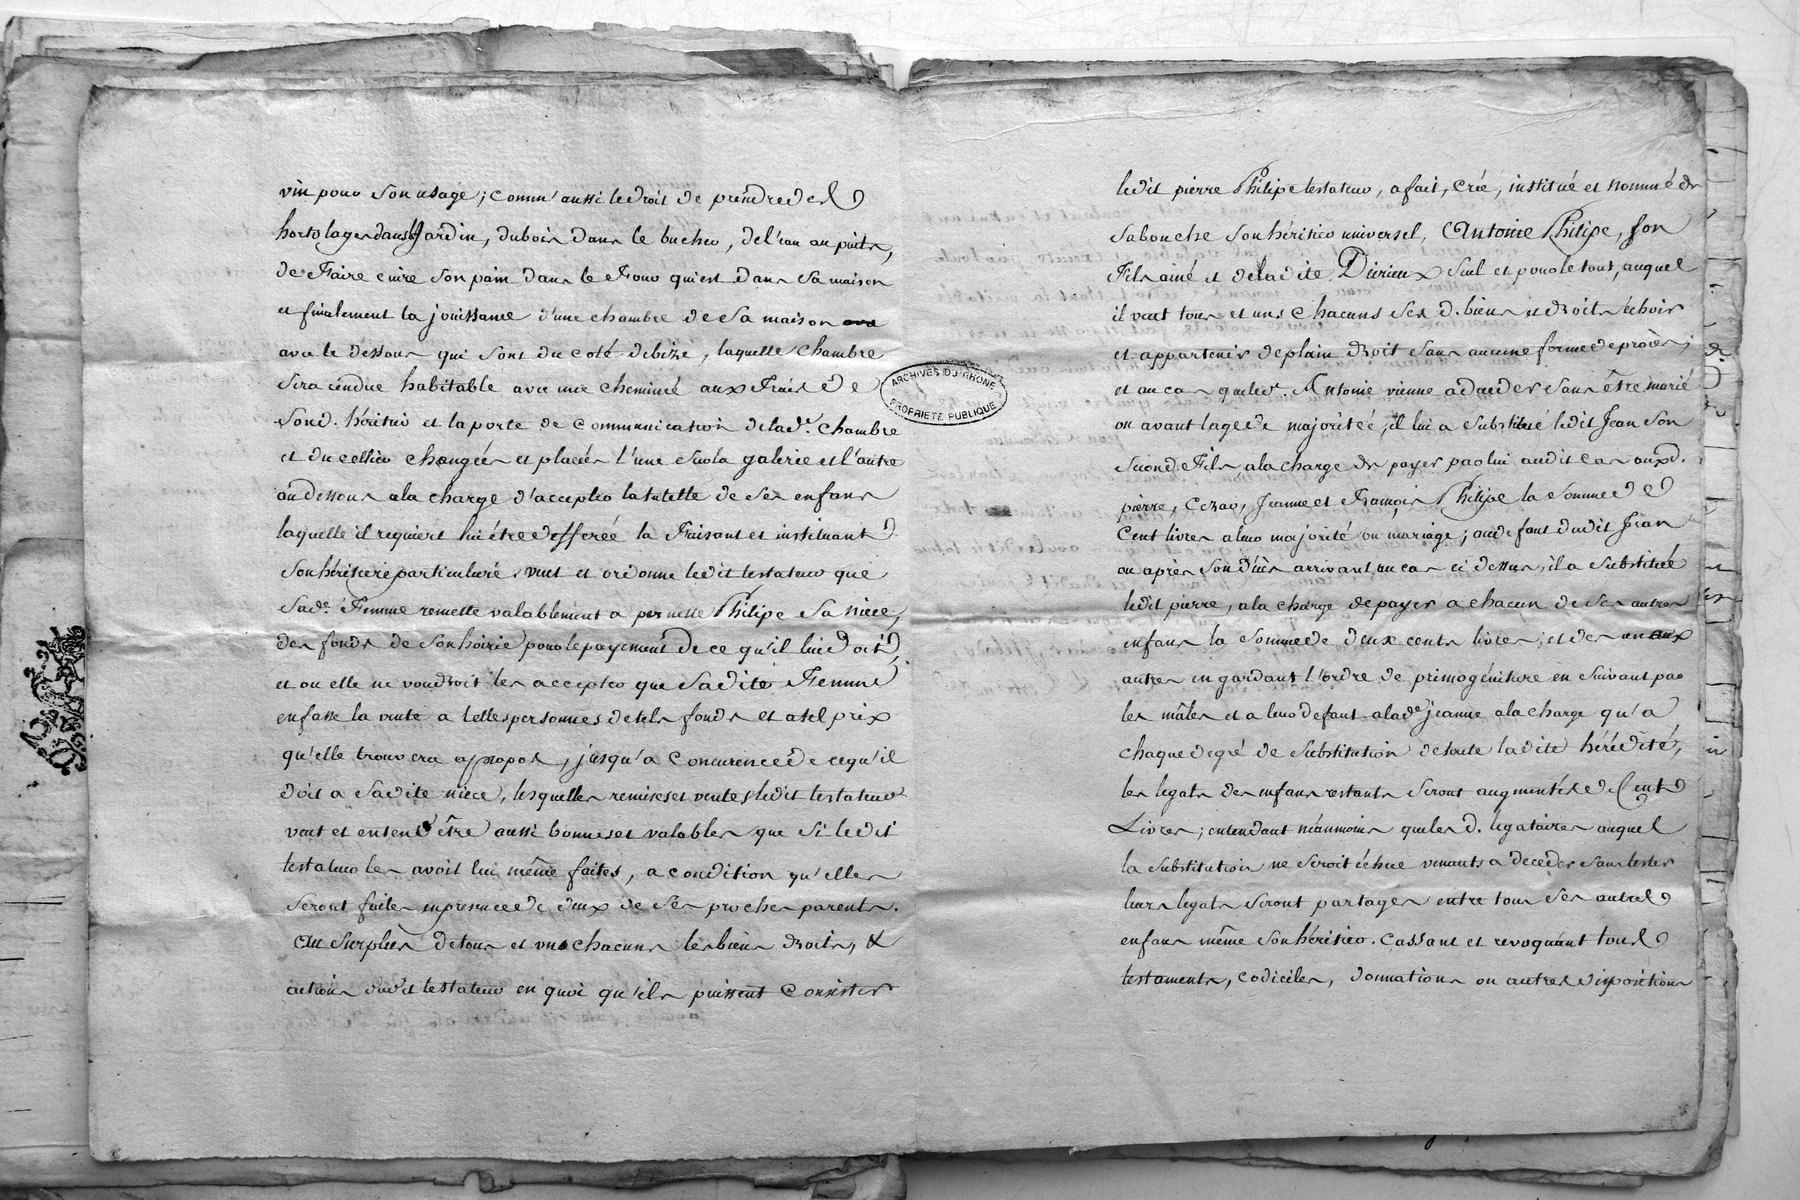 vin pour son usage; comm' aussi le droit de prendre des
hortolages dans le Jardin, du bois dans le bucher, de l'eau au puits,
de Faire cuire son pain dans le Four qui est dans sa maison
et finalement la jouissance d'une chambre de sa maison
avec le dessous qui sont du coté de bize, laquelle chambre
sera rendue habitable avec une cheminée aux Frais de
sond. héritier et la porte de communication de lad.e chambre
et du cellier changées et placées l'une sur la galerie et l'autre
au dessous a la charge d'accepter la tutelle de ses enfans
laquelle il requiert lui être defferée la Faisant et instituant
son héritiere particuliere, veut et ordonne ledit testateur que
sad.e Femme remette valablement a pernette Philipe sa niece,
des fonds de son hoirie pour le payement de ce qu'il lui doit,
et ou elle ne voudroit les accepter que sadite Femme
en fasse la vente a telles personnes de tels fonds et a tel prix
qu'elle trouvera apropos, jusqu'a concurence de ce qu'il
doit a sadite niece, lesquelles remises et ventes ledit testateur
veut et entend être aussi bonnes et valables que si ledit
testateur les avoit lui même faites, a condition qu'elles
seront faites en presence de deux de ses proches parents.
Au surplus de tous et uns chacuns les biens droits, &
actions dudit testateur en quoi qu'ils puissent consister
ARCHIVES DU RHONE
PROPRIETE PUBLIQUE
ledit pierre Philipe testateur, a fait, crée, institué et nommé de
sa bouche son héritier universel, Antoine Philipe, son
Fils ainé et de ladite Durieux seul et pour le tout, auquel
il veut tous et uns chacuns ses d. biens et droits échoir
et appartenir de plain droit sans aucune forme de procès;
et au cas que led. Antoine vienne a deceder sans être marié
ou avant l'age de majorité, il lui a substitué ledit Jean son
second Fils a la charge de payer par lui audit cas auxd.
pierre, Cezar, Jeanne et François Philipe la somme de
Cent livres a leur majorité ou mariage; au defaut dudit Jean
ou après son d'écès arrivant au cas ci dessus, il a substitué
ledit pierre, a la charge de payer a chacun de ses autres
enfans la somme de deux cents livres; et des uns aux
autres en gardant l'ordre de primogéniture en suivant par
les mâles et a leur defaut a lad.e jeanne a la charge qu'a
chaque degré de substitution de toute ladite hérédité,
les legats des enfans restants seront augmentés de Cent
Livres; entendant néanmoins que les d. legataires auquel
la substitution ne seroit échue venants a deceder sans tester
leurs legats seront partagés entre tous ses autres
enfans même son héritier. cassant et revoquant tous
testaments, codiciles, donnations ou autres dispositions